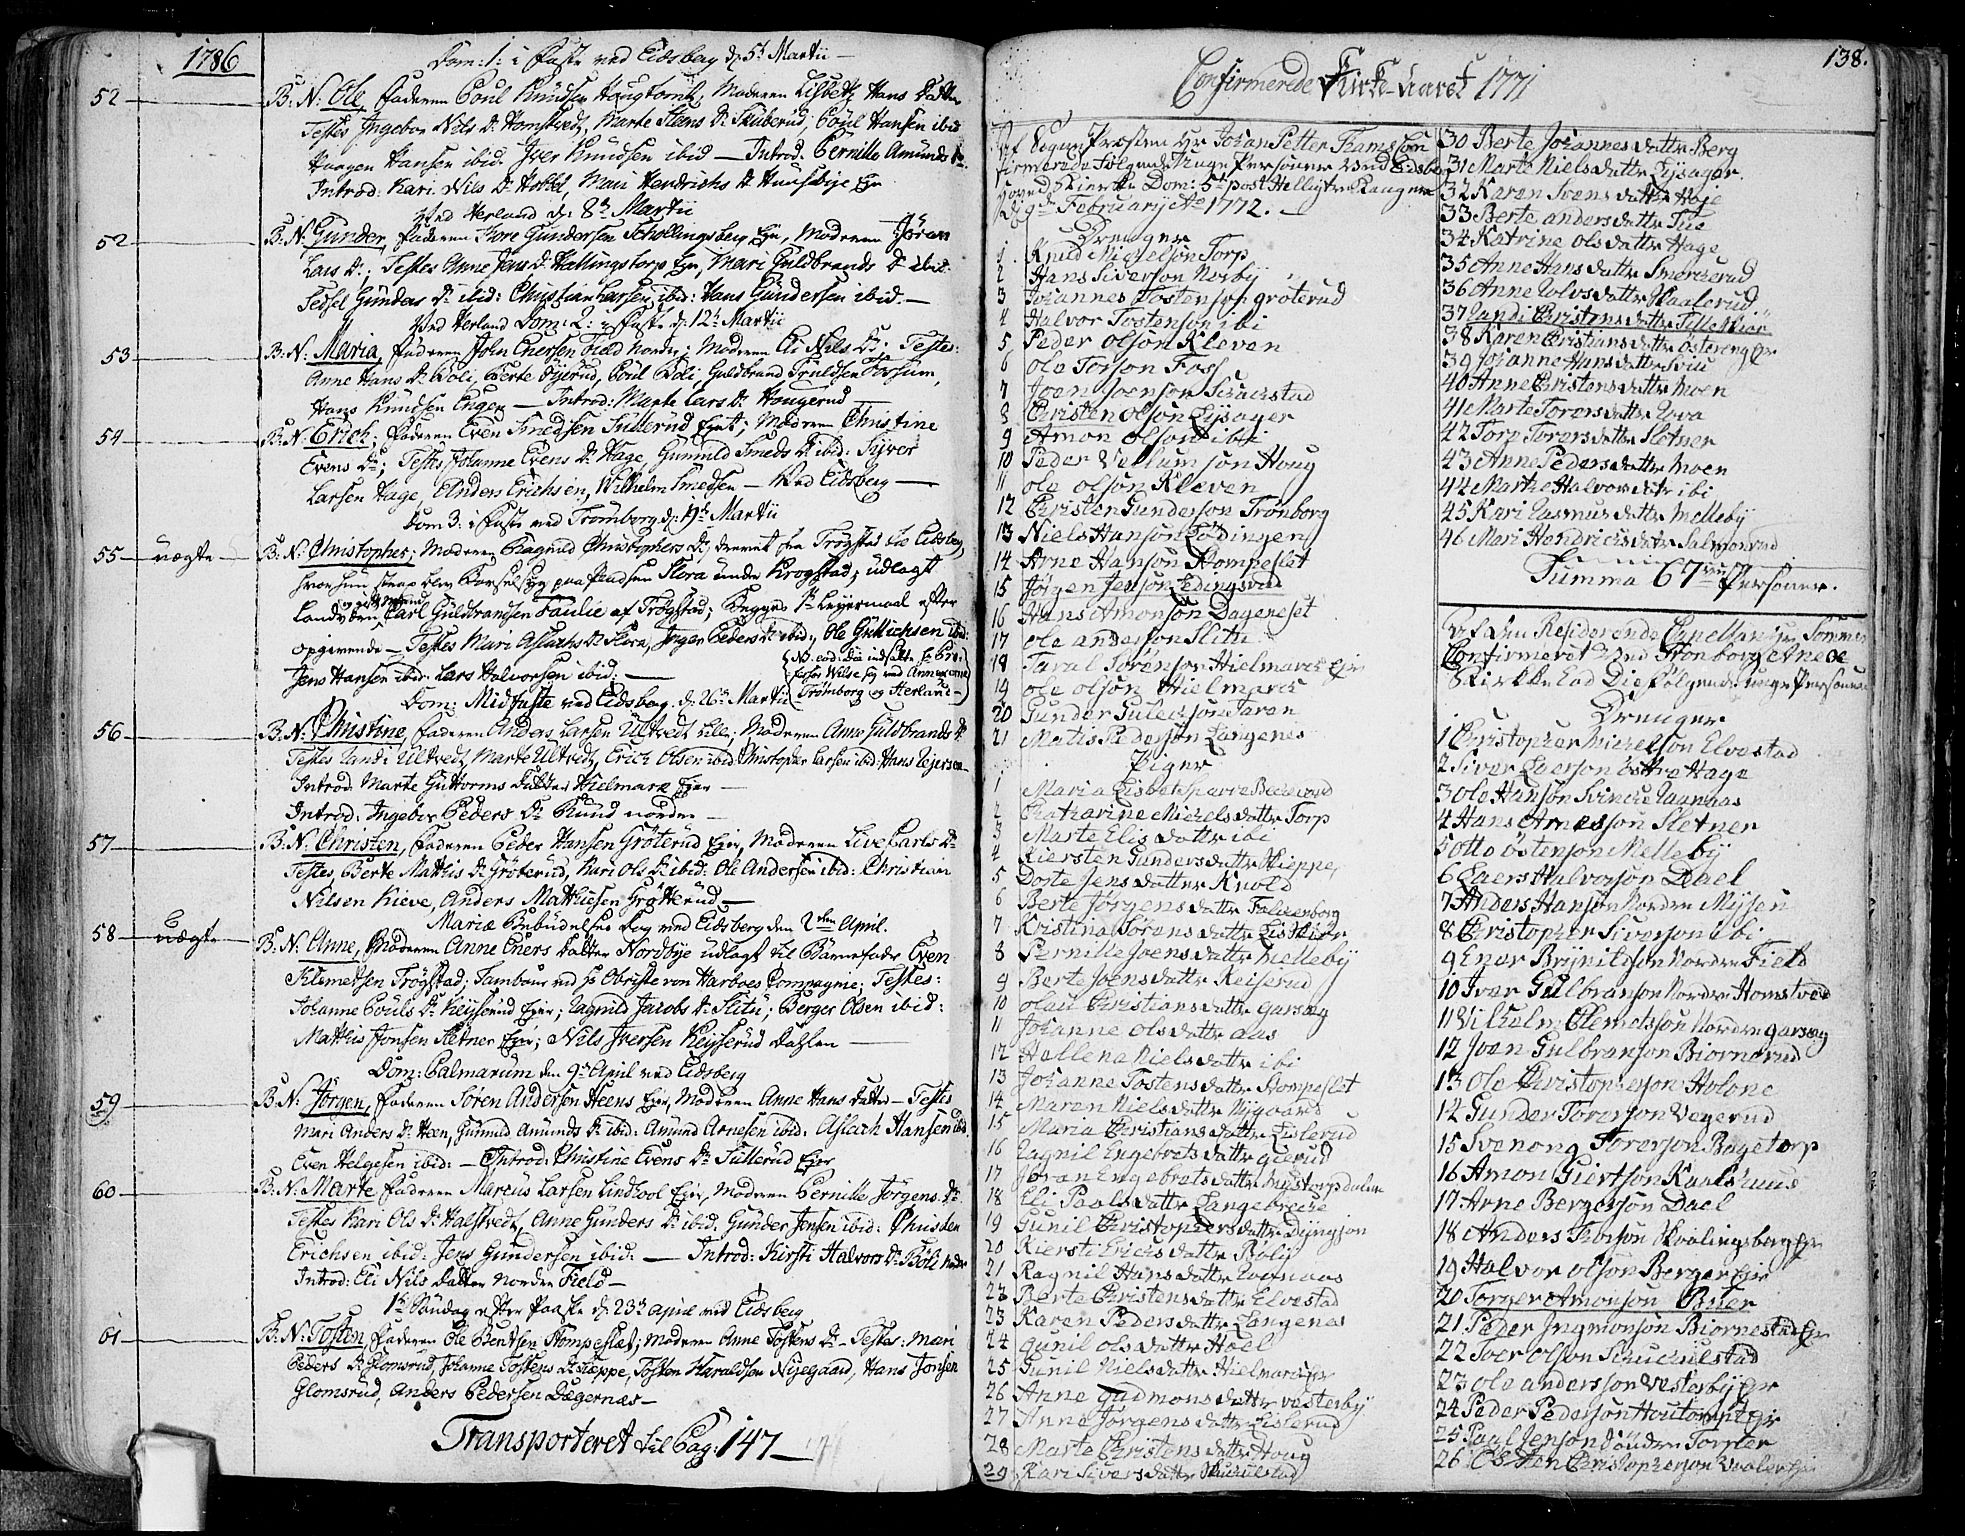 1786
Dom: 1: i Faste ved Eidsberg d: 5t Martii
52 B: N: Ole, Faderen Poul Knudsen Hougtomt, Moderen Lisbeth Hans Datter
Testes Ingebor Nils Dr Homstvedt, Marte Stens Dr Skuberud, Poul Hansen ibid
Haagen Hansen ibid. Iver Knudsen ibid — Introd. Pernille Amunds Dr
Introd: Kari Nils Dr Hobbel, Mari Hendrichs Dr Huusebye Eje
Ved Herland d: 8t Martii
52 B: N: Gunder, Faderen Tore Gundersen Schollingsberg Eje, Moderen Jöran
Lars Dr; Testes Anne Jens Dr Hallingstorp Eje, Mari Guldbrands Dr ibid.
Sedsel Gunders Dr ibid: Christian Larsen ibid: Hans Gundersen ibid.—
Ved Herland Dom: 2: i Faste d: 12t Martii
53 B: N: Maria, Faderen John Enersen Field Nordre; Moderen Eli Nils Dr; Testes:
Anne Hans Dr Boli, Berte Öÿerud, Poul Boli, Guldbrand Trulsen Fossum,
Hans Knudsen Enger — Introd: Marte Lars Dr Hougerud —
54 B: N: Erich; Faderen Even Smedsen Sullerud Ejet; Moderen Christine
Evens Dr; Testes Johanne Evens Dr Hage, Gunnild Smeds Dr ibid: Syver
Larsen Hage, Anders Erichsen, Wilhelm Smedsen — Ved Eidsberg —
Dom 3: i Faste ved Trömborg d: 19t Martii
55 uægte B: N: Christopher; Moderen Ragnild Christophers Dr, kommet fra Trögstad til Eidsberg,
hvor hun strax blev Barselsyg paa Pladsen Flora under Krogstad; udlagt
Landværn Carl Guldbrandsen Faulie af Trögstad; Begges 1te Leyermaal efter
opgivende — Testes Mari Aslachs Dr Flora, Jörgen Peders Dr ibid:, Ole Gullichsen ibid:
Jens Hansen ibid. Lars Halvorsen ibid: —
(NB. eod: Die indsatte Hr Pro-
fessor Wilse sig ved Annexerne
Trömborg og Herland—)
Dom: Midfaste ved Eidsberg, d: 26t Martii
56 B: N: Christine, Faderen Anders Larsen Ultvedt Lille; Moderen Anne Guldbrands Dr
Testes Randi Ultvedt, Marte Ultvedt, Erich Olsen ibid Christopher Larsen ibid. Hans
Introd: Marte Guttorms Datter Hielmark Eje —
Introd: Ingebor Peders Dr Rund nordre —
57 B: N: Christen, Faderen Peder Hansen Gröterud Eje, Moderen Live Carls Dr
Testes, Berte Mathis Dr Gröterud, Mari Ols Dr ibid: Ole Andersen ibid: Christian
Nilsen Kieve, Anders Mathiesen Grötterud —
Mariæ Bebudelses Dag ved Eidsberg den 2den April.
58 uægte B: N: Anne, Moderen Anne Eners Datter Nordbye udlagt til Barnefader Even
Klemetsen Trögstad; Tambour ved Hr Obriste von Harboes Compagnie; Testes:
Johanne Pouls Dr Keyserud Eje; Ragnild Jacobs Dr Slitu; Berger Olsen ibid:
Mathis Jonsen Sletner Eje; Nils Iversen Keyserud Dahlen —
Dom: Palmarum den 9t April ved Eidsberg
59 B: N: Jörgen, Faderen Sören Andersen Heens Eje, Moderen Anne Hans Datter — Testes
Mari Anders Dr Heen, Gunnild Amunds Dr ibid: Amund Arnesen ibid: Aslach Hansen ibid.
Even Helgesen ibid: — Introd: Christine Evens Dr Sullerud Eje
60 B: N: Marte, Faderen Marcus Larsen Lindhool Eje, Moderen Pernille Jörgens Dr
Testes Kari Ols Dr Halstvedt, Anne Gunders Dr ibid. Gunder Jensen ibid: Christen
Erichsen ibid: Jens Gundersen ibid: — Introd: Kirsti Halvors Dr Böli nordr
Introd: Eli Nils Datter nordre Field —
1te Söndag efter Paaske d: 23t April ved Eidsberg
61 B: N: Tosten, Faderen Ole Bentsen Stompeslæt; Moderen Anne Tostens Dr — Testes: Mari
Peders Dr Glomsrud, Johanne Tostens Dr Kieppe, Tosten Haraldsen Nyegaard, Hans Jonsen
Glomsrud, Anders Pedersen Dægernæs —
Transporteret til Pag: 147 —
138.
Confirmerede Kirke-Aaret 1771
Af Sogne Præsten Hr Johan Petter Tramsson
firmerede Følgende Unge Personer ved Eidsberg
Hoved Kierke Dom: 5t post Hellig tre Konger
d: 9de February Ao 1772. —
Drenger
1. Knud Michelson Torp
2 Hans Siverson Norby
3 Johannes Tostenson Groterud
4 Halvor Tostenson ibi
5 Peder Olson Kleven
6 Ole Torson Foss
7 Joen Joenson Skackstad
8 Christen Olson Lysager
9 Amon Olson ibi
10 Peder Vellumson Houg
11 Ole Olson Kleven
12 Christen Gunderson Tronborg
13 Niels Hanson Lödingen
14 Arne Hanson Stompeslet
15 Jörgen Jenson Edingsrud
16 Hans Amonson Dageneset
17 Ole Anderson Slitu
18 Taral Sörenson Hielmarck Eje
19 Ole Olson Hielmarck
20 Gunder Gulleckson Faren
21 Matis Pederson Langenes
Piger
1 Maria Lisbet Sparre Beckevold
2 Chatharine Michels datter Torp
3 Marte Elis datter ibi
4 Kiersten Gunders datter Kieppe
5 Dorte Jens datter Knold
6 Berte Jörgens datter Falckenborg
7 Kristina Sörens datter
8 Pernille Joens datter Melleby
9 Berte Joens datter Keiserud
10 Olau Christians datter Garseg
11 Johanne Ols datter Aas
12 Hellena Niels datter ibi
13 Johanne Tostens datter Stompeslet
14 Maren Niels datter Nygaard
15 Maria Christians datter Eislerud
16 Ragnil Engebrets datter Gierud
17 Joran Engebrets datter Mystorpdalen
18 Eli Paals datter Langebrecke
19 Gunil Christophers datter Dyngson
20 Kiersti Ericks datter Boliy
21 Ragnil Hans datter
22 Berte Christens datter Elvestad
23 Karen Peders datter Langenes
24 Gunil Ols datter Hoel
25 Gunil Niels datter Hielmarck Eje
26 Anne Gudmons datter Vesterby
27 Anne Jörgens datter Eislerud
28 Marte Christens datter Houg
29 Kari Sivers datter Skuckelstad
30 Berte Johannes datter Berg
31 Marte Niels datter Lysager.
32 Karen Svens datter Höje
33 Berte Anders datter Tue
34 Katrine Ols datter Hage
35 Anne Hans datter Smörckerud
36 Anne Rolvs datter Haalerud
37 Randi Christens datter
38 Karen Christians datter Österenge Eje
39 Johanne Hans datter Sviu
40 Anne Christens datter Moen
41 Marte Torers datter Rova
42 Torp Torers datter Sletner
43 Anne Peders datter Moen
44 Marthe Halvors datr ibi
45 Kari Rasmus datter Melleby
46 Mari Hendricks datter Salmonrud
Summa 67 Unge Personer.
Af den Residerende Capellan Hr Sommer
Confirmeret ved Tronborg Annex
Kirke Eod Die følgende unge Personer
Drenger
1 Christopher Michelson Elvestad
2 Siver Everson Östre Hage
3 Ole Hanson
4 Hans Arneson Sletner
5 Otto Östenson Melleby
6 Laers Halvorson Dael
7 Anders Hanson Nordre Mysen
8 Christopher Siverson ibi
9 Ener Brynildson Nordre Field
10 Iver Gulbranson Nordre Homstved
11 Vilhelm Clemetson Nordre Garseg
12 Joen Gulbranson Biornerud
13 Ole Christopherson Holone
14 Gunder Toreson Vegerud
15 Svenong Toreson Bagetorp
16 Amon Giertson Karlshuus
17 Arne Bergerson Dael
18 Anders Ibson Skallingsberg Eje
19 Halvor Olson Berger Eje
20 Torger Amonson Buer
21 Peder Ingmonson Biornestad Eje
22 Iver Olson Skuckelstad
23 Ole Andersson Vesterby Eje
24 Peder Pederson Houtompt Eje
25 Paal Jenson Söndre Torper
26 Östen Christopherson Vooler Eje